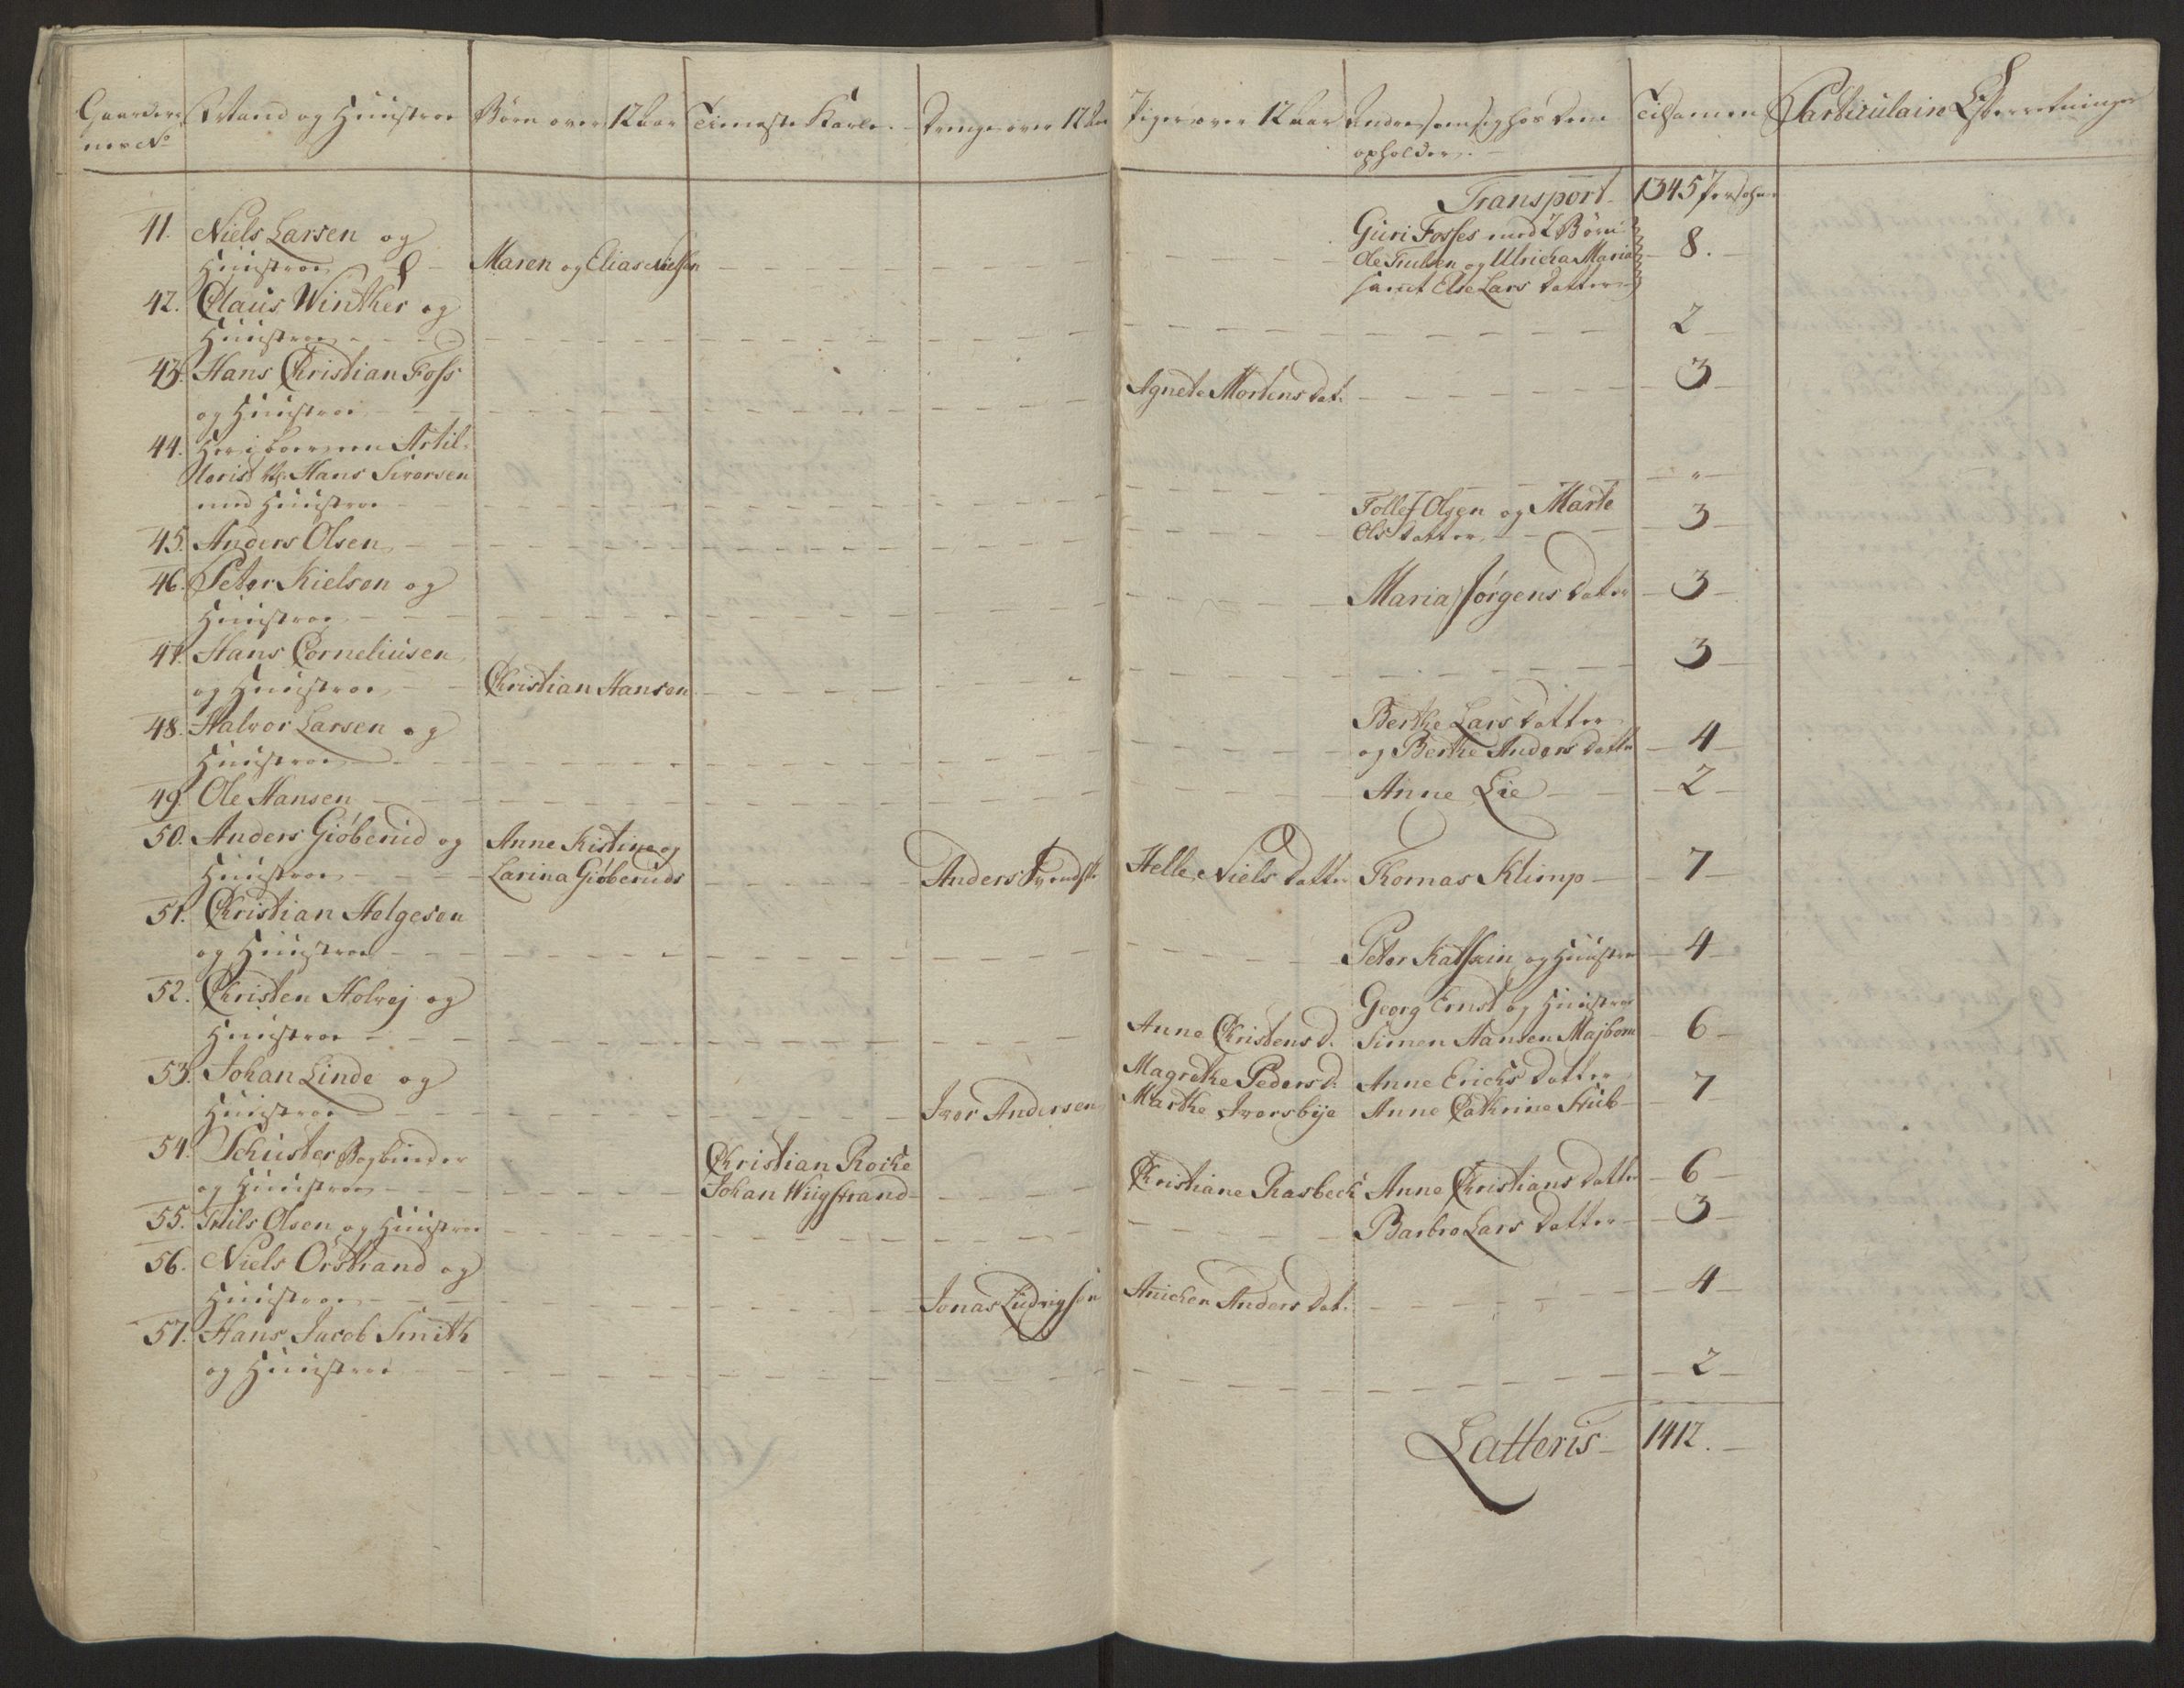 Gaardernes No
Mand og Huustroe
Børn over 12 Aar
Tieneste Karle
Drenge over 12 Aar
Piger over 12 Aar
Andre som sig hos dem
opholder.
Tilsamen
Particulaire Efterretninger
Transport - 1345 Persohner
41. Niels Larsen og
Huustroe - Maren og Elias Nielsen
Guri Fosses med 2 Børn
Ole Trulsen og Ulricha Maria
samt Else Lars datter - 8.
42. Claus Winther og
Huustroe - 2
43. Hans Christian Foss
og Huustroe - Agnete Mortens dat. - 3
44. Artil-
lerist Hans Siversen
med Huustroe - "
45. Anders Olsen - Tollef Olsen og Marte
Ols datter - 3
46. Peter Kielsen og
Huustroe - Maria Jørgens datter - 3
47. Hans Corneliusen
og Huustroe - Christian Hansen - 3
48. Halvor Larsen og
Huustroe - Berthe Lars datter
og Berthe Anders datter - 4
49. Ole Hansen - Anne Lie - 2
50. Anders Giøberud og
Huustroe - Anne Kistine og
Larina Giøberuds - Anders - Helle Niels datter - Thomas Klimp - 7
51. Christian Helgesen
og Huustroe - Peter og Huustroe - 4
52. Christen Holvej og
Huustroe - Anne Christens d. - Georg Ernst og Huustroe
Simen Hansen Majbom - 6
53. Johan Linde og
Huustroe - Iver Andersen - Magrethe Peders d.
Marthe Iversbye - Anne Erichs datter
Anne Cathrine Stub - 7
54. Schuster Bogbinder
og Huustroe - Christian Rocke
Johan Wiigstrand - Christiane Rasbeck - Anne Christians datter - 6
55. Truls Olsen og Huustroe - Barbro Lars datter - 3
56. Niels Orstrand og
Huustroe - Jonas Ludvigsen - Anichen Anders dat. - 4
57. Hans Jacob Smith
og Huustroe - 2
Latteris - 1412.